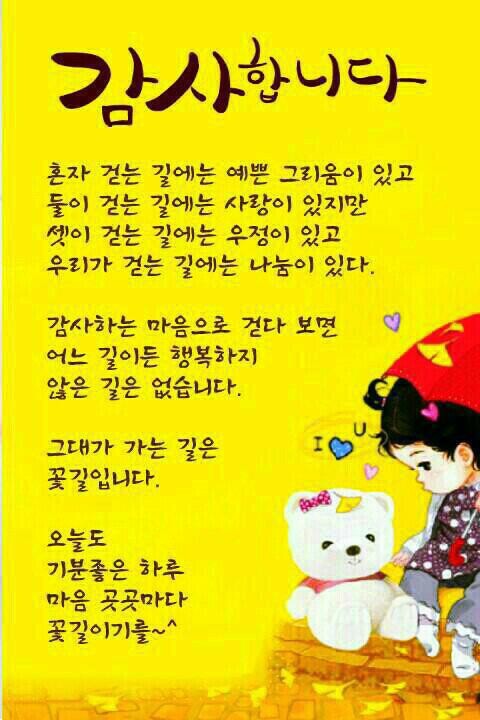 감사합니다
혼자 걷는 길에는 예쁜 그리움이 있고
둘이 걷는 길에는 사랑이 있지만
셋이 걷는 길에는 우정이 있고
우리가 걷는 길에는 나눔이 있다.
감사하는 마음으로 걷다 보면
어느 길이든 행복하지
않은 길은 없습니다.
그대가 가는 길은
꽃길입니다.
I U
오늘도
기분좋은 하루
마음 곳곳마다
꽃길이기를~^